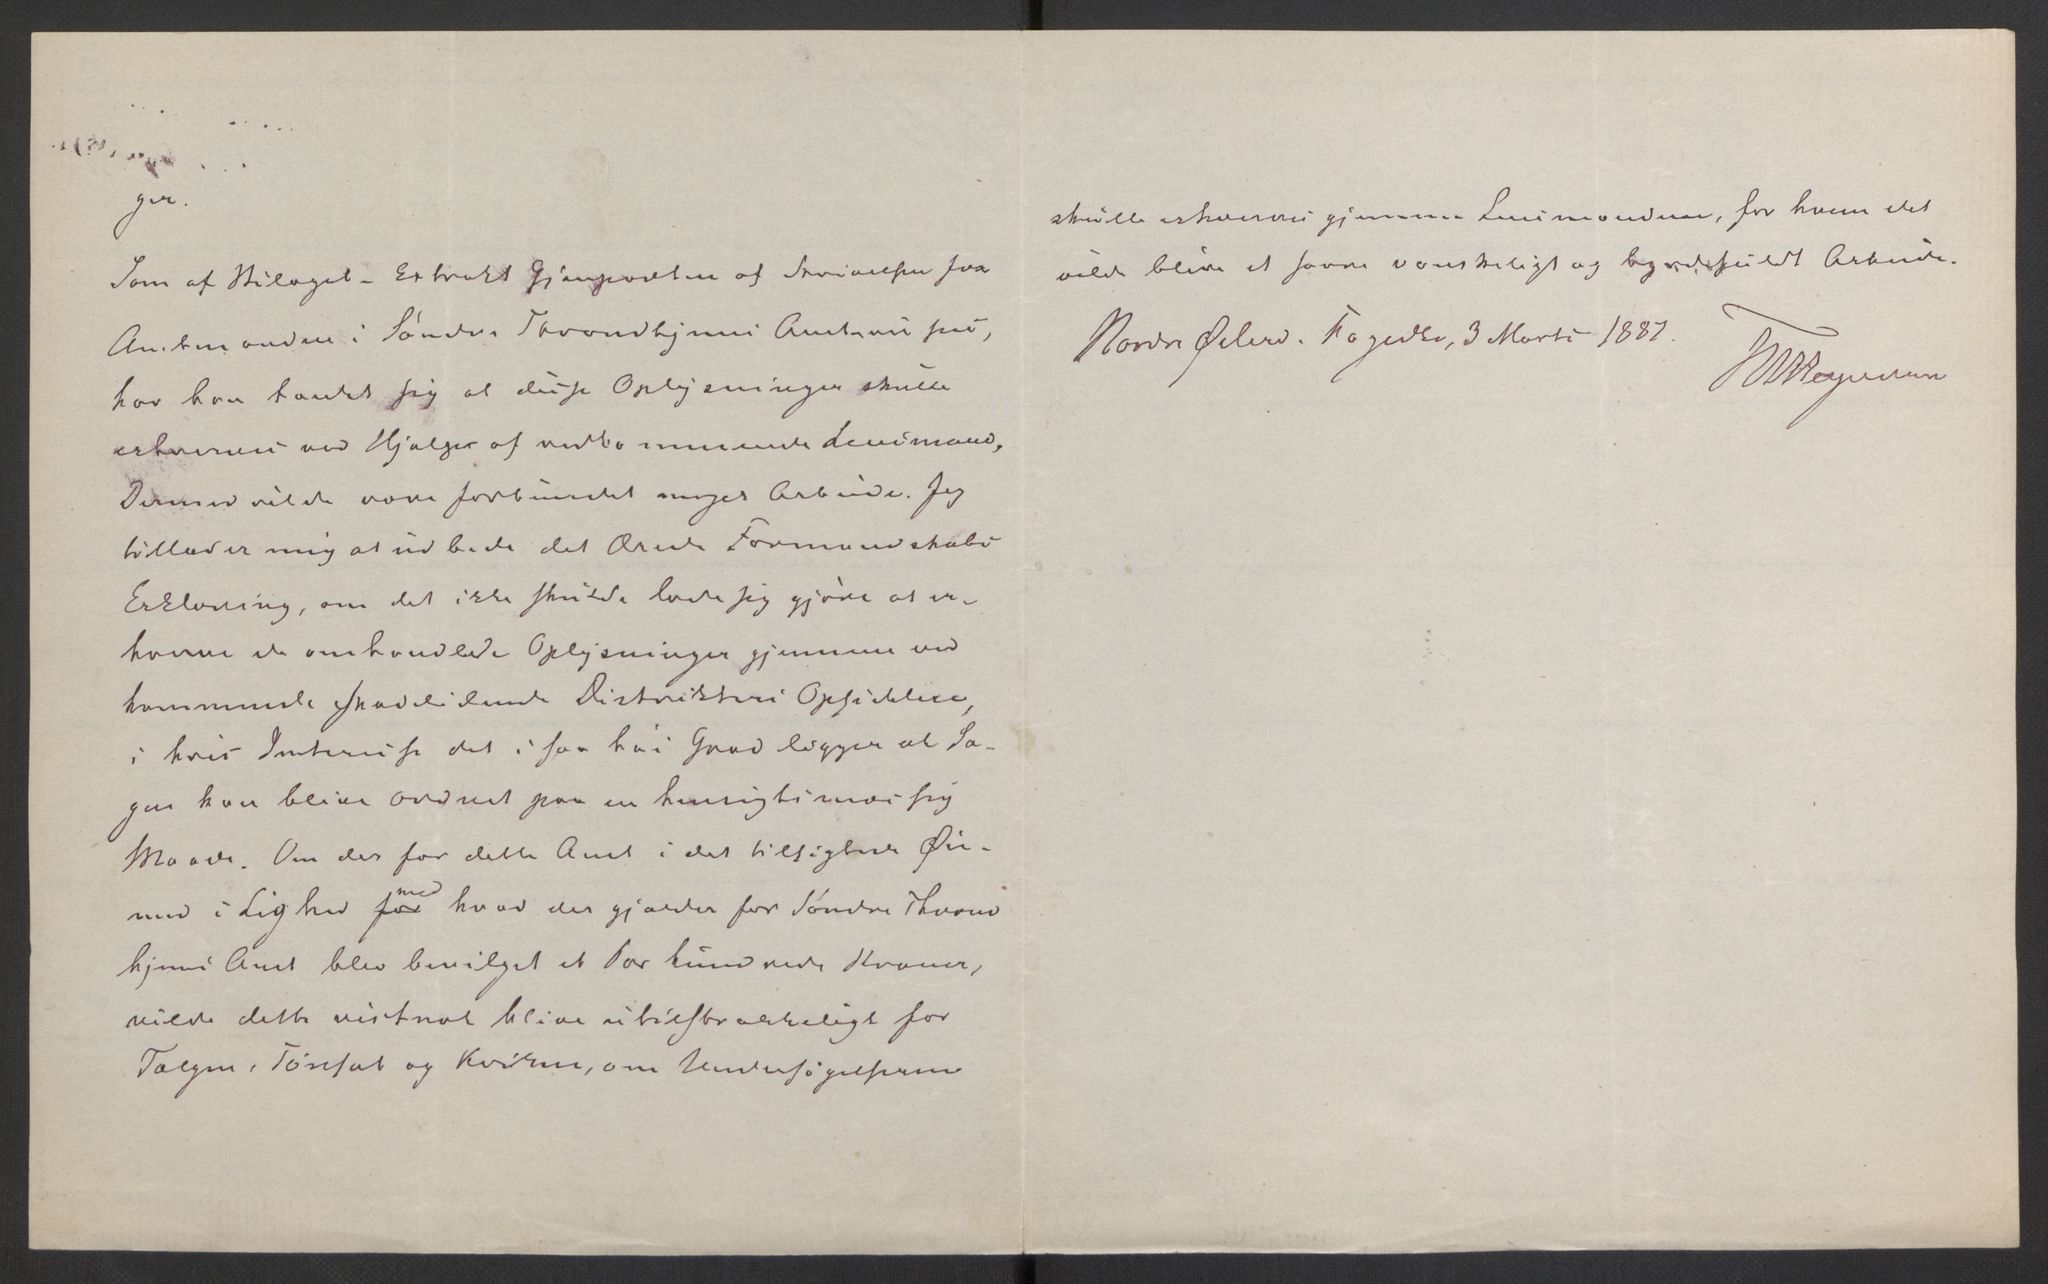 ger.
Som af Bilaget - Extrakt Gjenparten af Skrivelsen fra
Amtmanden i Søndre Throndhjems Amt vil sees,
har han tænkt sig at disse Oplysninger skulle
erhverves ved Hjælp af vedkommende Lensmand,
Dermed vilde være forbundet meget Arbeide. Jeg
tillader mig at udbede det Ærede Formandskabs
Erklæring, om det ikke skulde lade sig gjøre at er-
hverve de omhandlede Oplysninger gjennem ved
kommende skadelidende Distrikters Opsiddere,
i hvis Interesse det i saa høi Grad ligger at Sa-
gen kan blive ordnet paa en hensigtsmæssig
Maade. Om der for dette Amt i det tilsigtede Øie-
med i Lighed for med hvad der gjælder for Søndre Thrond
hjems Amt blev bevilget et Par hundrede Kroner,
vilde dette vistnok blive utilstrækkeligt for
Tolgen, Tønset og Kvikne, om Undersøgelserne
skulle erhverves gjennem Lensmændene, for hvem det
vilde blive et saare vanskeligt og byrdefuldt Arbeide.
Nordre Østerd. Fogedko, 3 Marts 1887.